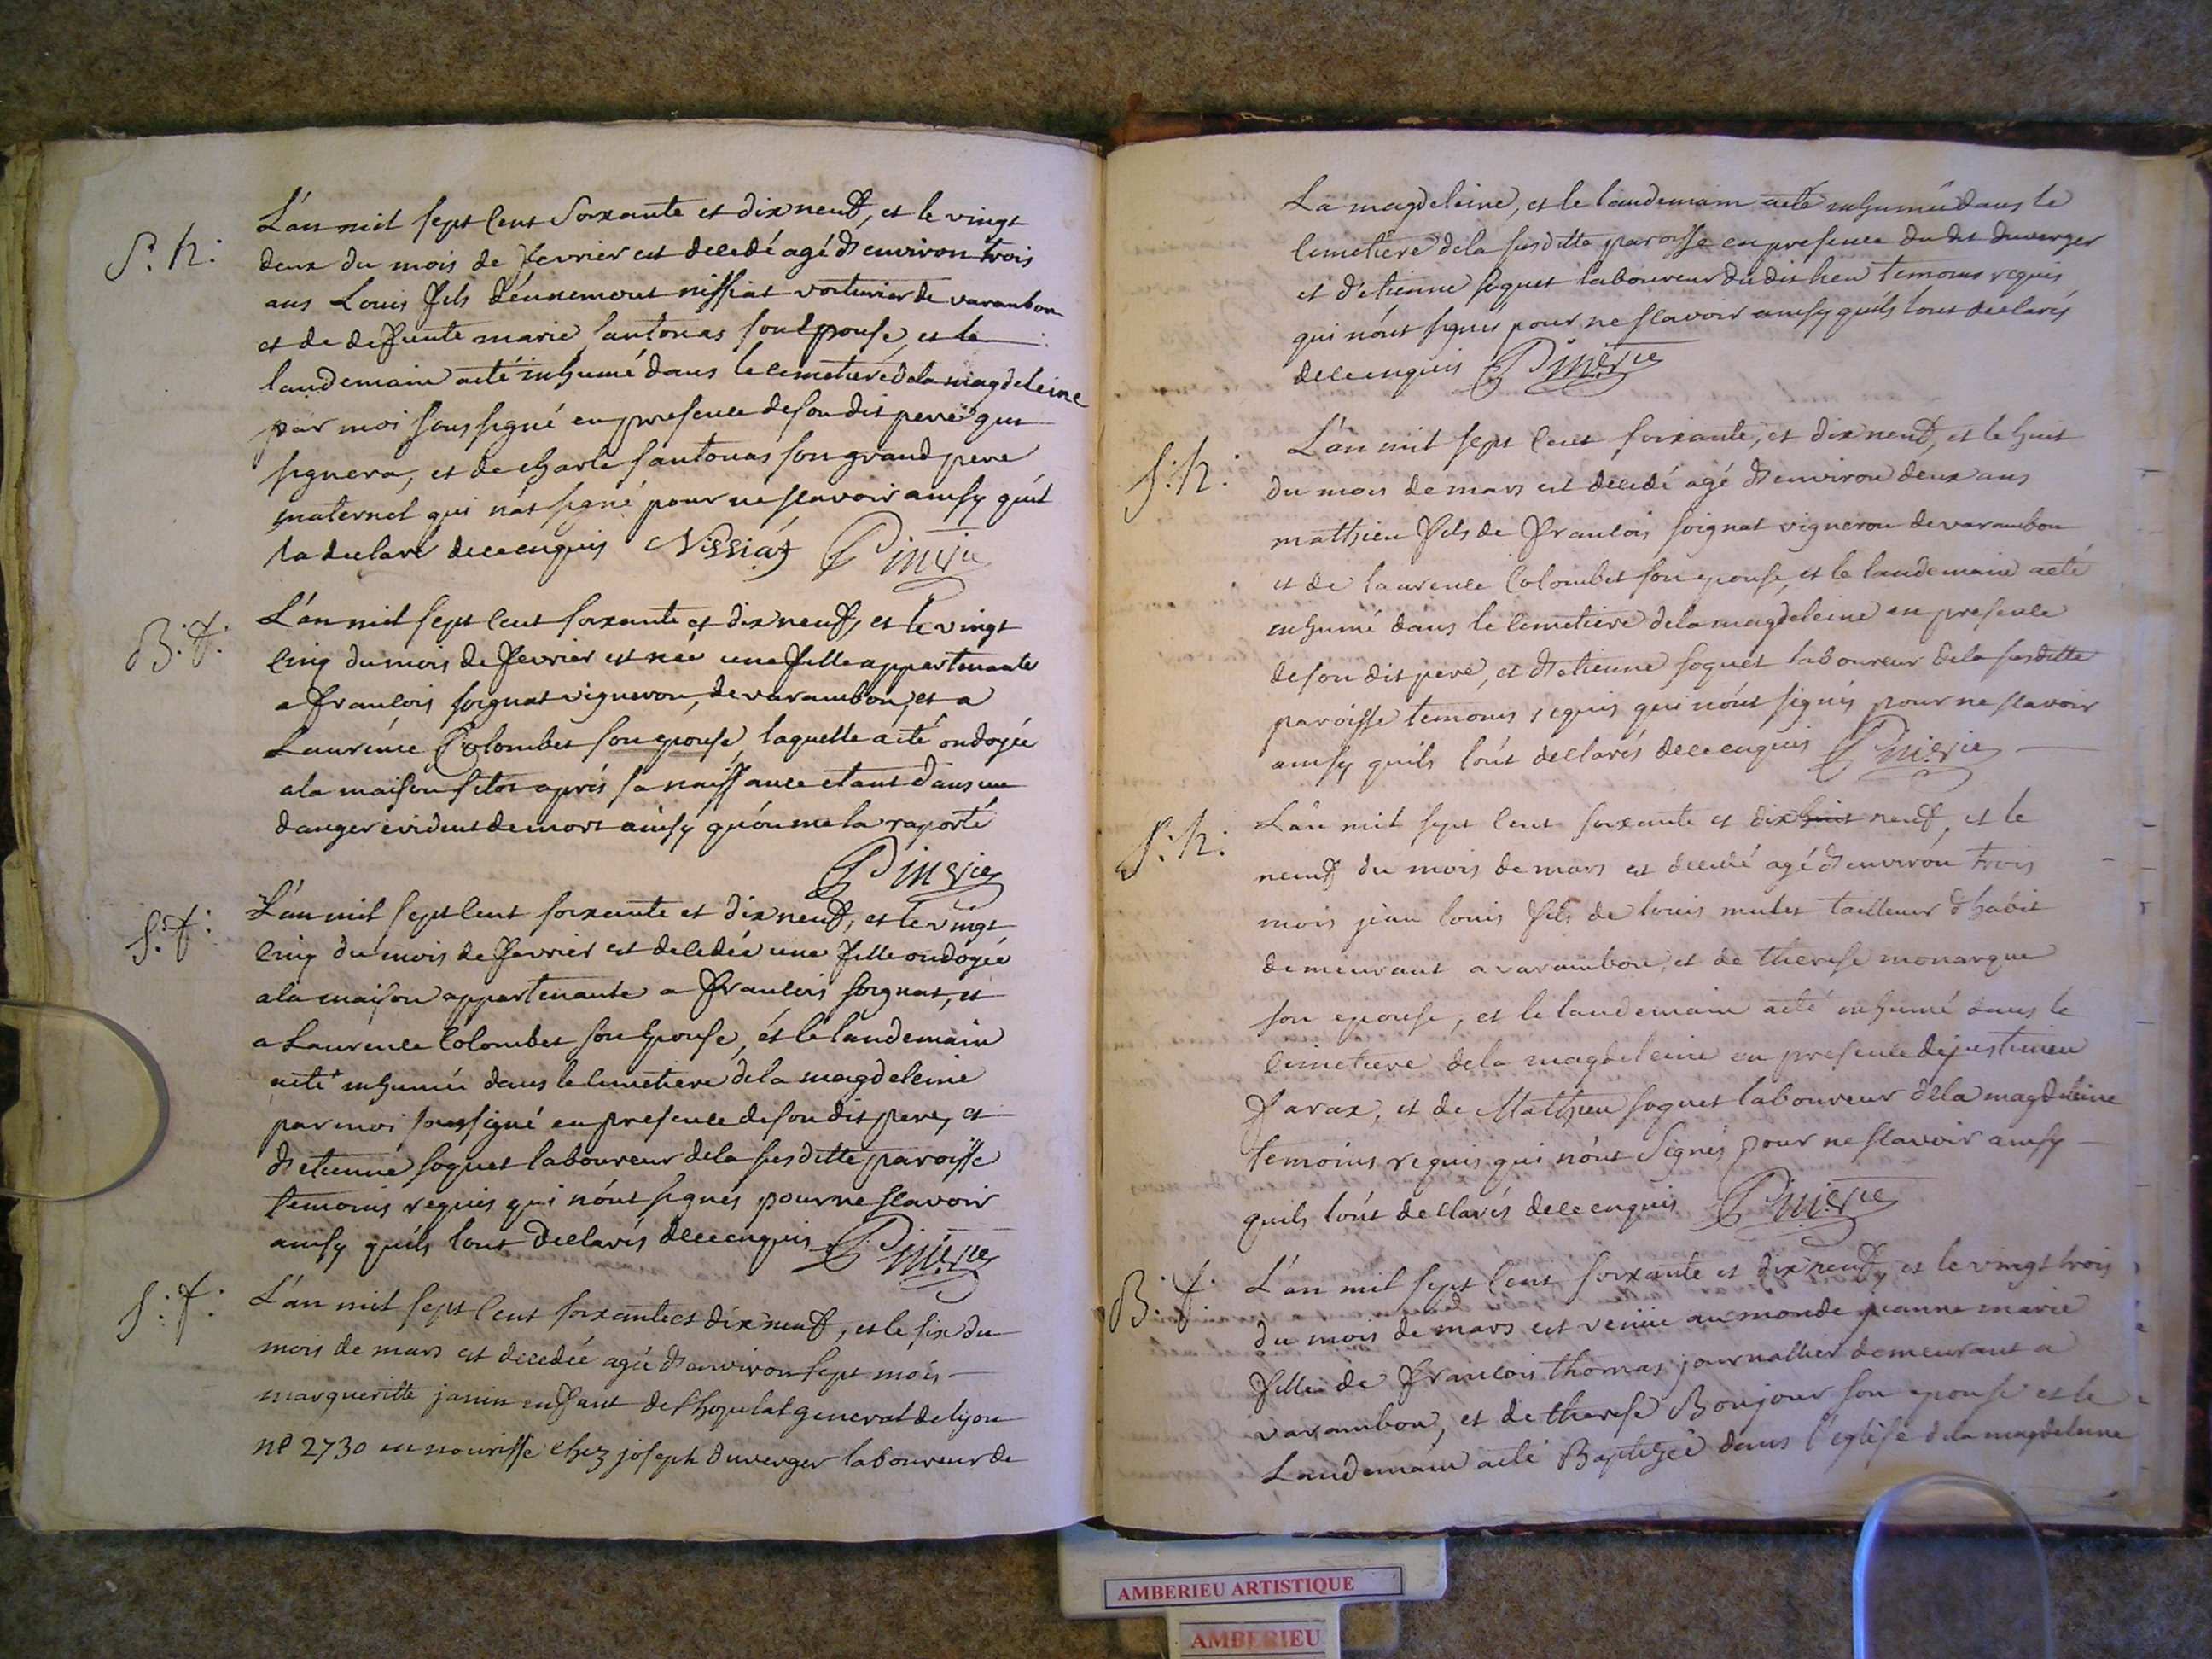 S. h:
L'an mil sept cent soixante et dix neuf, et le vingt
deux du mois de fevrier est decedé agé d'environ trois
ans Louis fils d'ennemont nissiat voiturier de varambon
et de defunte marie santonas son epouse, et le
landemain a eté inhumé dans le cemetiere de la magdeleine
par moi soussigné en presence de son dit pere qui
signera, et de charle santonas son grand pere
maternel qui n'at signé pour ne scavoir ainsy qu'il
la declaré de ce enquis Nissiat
B: f:
L'an mil sept cent soixante et dix neuf, et le vingt
cinq du mois de fevrier est née une fille appartenante
a francois soignat vigneron, de varambon, et a
Laurence Colombet son epouse, laquelle a eté ondoyée
a la maison sitot aprés sa naissance etant dans un
danger evident de mort ainsy qu'on me la raporté
s. f:
L'an mil sept cent soixante et dix neuf, et le vingt
cinq du mois de fevrier est decedée une fille ondoyée
a la maison appartenante a francois soignat, et
a Laurence Colombet son epouse, et le landemain
a eté inhumée dans le cemetiere de la magdeleine
par moi soussigné en presence de son dit pere, et
d'etienne soquet laboureur de la susditte paroisse
temoins requis qui n'ont signés pour ne scavoir
ainsy qu'ils l'ont declarés de ce enquis
s: f:
L'an mil sept cent soixante et dix neuf, et le six du
mois de mars est decedée agée d'environ sept mois
margueritte janin enfant de l'hopital general de lyon
n° 2730 en nourisse chez joseph duverger laboureur de
La magdeleine, et le landemain a eté inhumée dans le
cemetiere de la susditte paroisse en presence du dit duverger
et d'etienne soquet laboureur du dit lieu temoins requis
qui n'ont signés pour ne scavoir ainsy qu'ils l'ont declarés
de ce enquis
s: h:
L'an mil sept cent soixante, et dix neuf, et le huit
du mois de mars est decedé agé d'environ deux ans
mathieu fils de francois soignat vigneron de varambon
et de laurence Colombet son epouse, et le landemain a eté
inhumé dans le cemetiere de la magdeleine en presence
de son dit pere, et d'etienne soquet laboureur de la susditte
paroisse temoins requis qui n'ont signés pour ne scavoir
ainsy qu'ils l'ont declarés de ce enquis
s: h:
L'an mil sept cent soixante et dix huit neuf, et le
neuf du mois de mars est decedé agé d'environ trois
mois jean louis fils de louis mulet tailleur d'habit
demeurant a varambon, et de therese monarque
son epouse, et le landemain a eté inhumé dans le
cimetiere de la magdeleine en presence de justinien
farax, et de Mathieu soquet laboureur de la magdeleine
temoins requis qui n'ont signés pour ne scavoir ainsy
qu'ils l'ont declarés de ce enquis
B: f:
L'an mil sept cent soixante et dix neuf, et le vingt trois
du mois de mars est venüe au monde jeanne marie
fille de francois thomas journallier demeurant a
varambon, et de therese Bonjour son epouse et le
Landemain a eté Baptisée dans l'eglise de la magdeleine
AMBERIEU ARTISTIQUE
AMBERIEU